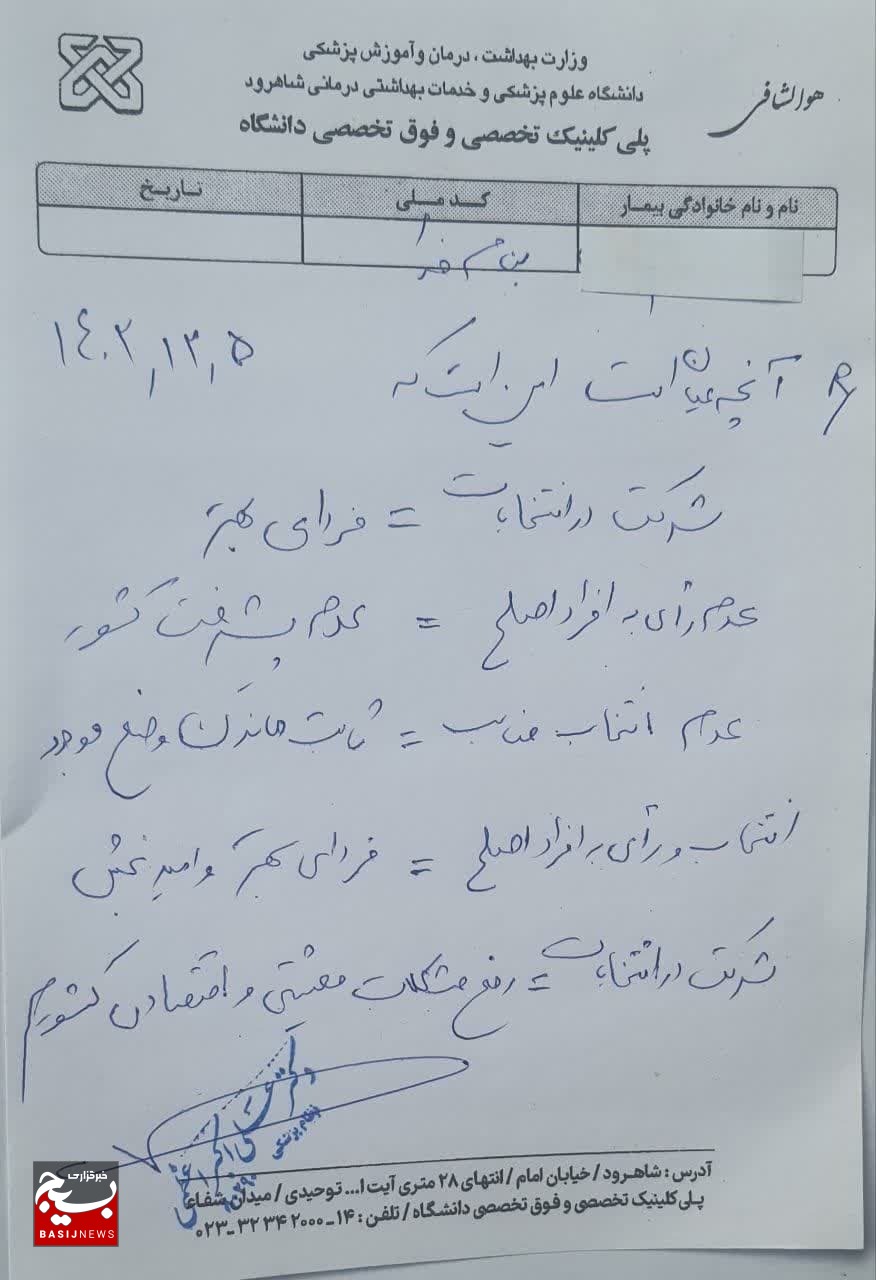 هوالشافی
وزارت بهداشت، درمان و آموزش پزشکی
دانشگاه علوم پزشکی و خدمات بهداشتی درمانی شاهرود
پلی کلینیک تخصصی و فوق تخصصی دانشگاه
نام و نام خانوادگی بیمار کد ملی تاریخ
بنام خدا
۱۴۰۲,۱۲,۵
آنچه عیان است این است که
شرکت در انتخابات = فردای بهتر
عدم رأی به افراد اصلح = عدم پیشرفت کشور
عدم انتخاب مناسب = ثابت ماندن وضع موجود
انتخاب و رأی به افراد اصلح = فردای بهتر و امید بخش
شرکت در انتخابات = رفع مشکلات معیشتی و اقتصادی کشوریم
دکتر
نظام پزشکی
آدرس: شاهرود / خیابان امام / انتهای ۲۸ متری آیت ا... توحیدی / میدان شفاء
پلی کلینیک تخصصی و فوق تخصصی دانشگاه / تلفن: ۱۴ــ۲۰۰۰ ۳۴ ۳۲ــ۰۲۳
خبرگزاری
بسیج
BASIJNEWS